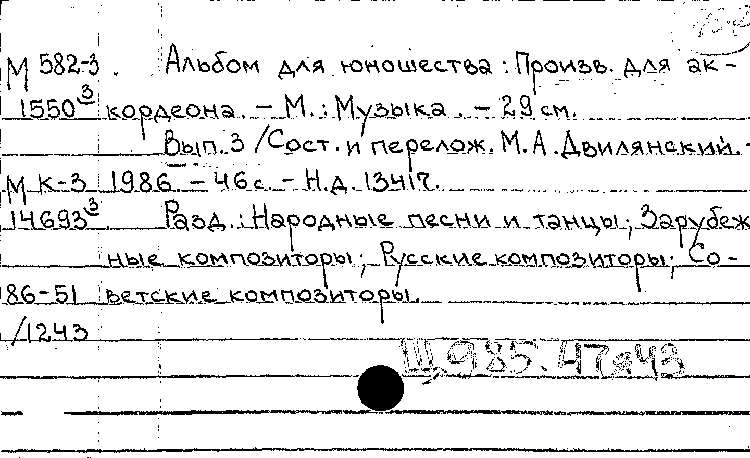 М 582-3. Альбом для юношества : Произв. для ак-
1550³ кордеона. – М. : Музыка. – 29 см.
Вып. 3 / Сост. и перелож. М.А. Двилянский. -
М К-3 1986 – 46 с. – Н.д. 13417.
14693³ Разд.: Народные песни и танцы; Зарубеж
ные композиторы; Русские композиторы; Со-
86-51 ветские композиторы.
/1243
Щ985.47я43